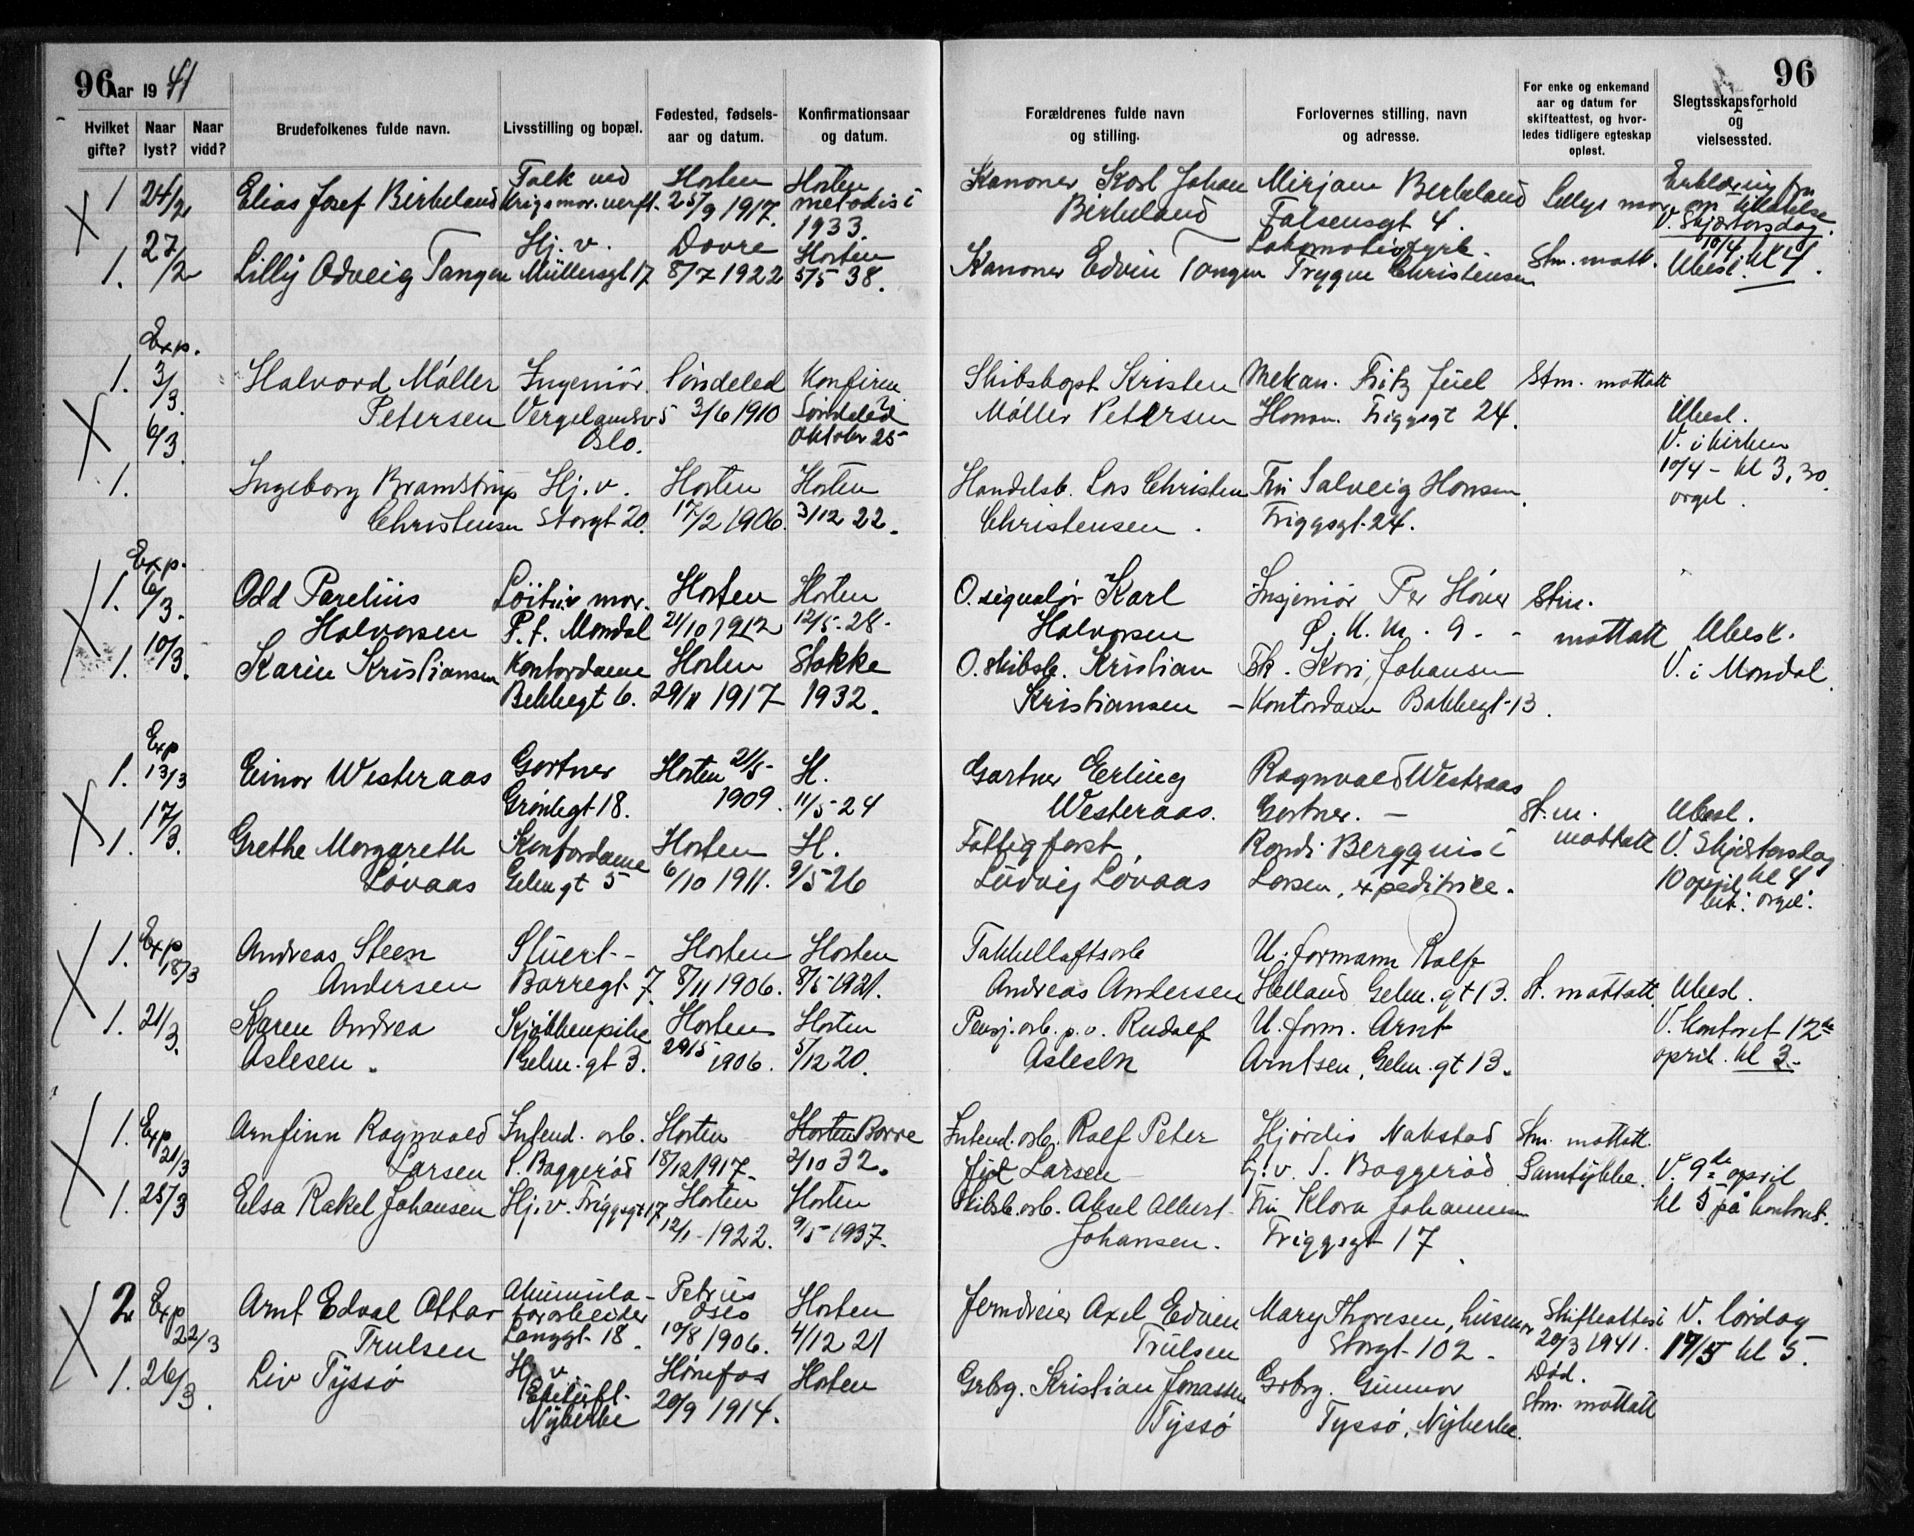 96 Aar 1941
96
Hvilket gifte?
Naar lyst?
Naar vidd?
Brudefolkenes fulde navn.
Livsstilling og bopæl.
Fødested, fødsels-
aar og datum.
Konfirmationsaar
og datum.
Forældrenes fulde navn
og stilling.
Forlovernes stilling, navn
og adresse.
For enke og enkemand
aar og datum for
skifteattest, og hvor-
ledes tidligere egteskap
opløst.
Slegtsskapsforhold
og
vielsessted.
1. 24/2 Elias Josef Birkeland
Horten
25/9 1917.
Horten
metodist
1933.
Kanoner Karl Johan
Birkeland
Mirjam Birkeland
Falsensgt 4.
V. Skjærtorsdag
10/4 kl 4.
1. 27/2 Lilly Odveig Tangen
Hj. v.
Müllersgt 17
Dovre
8/7 1922
Horten
5/5 38.
Kanoner Edvin Tangen
Trygve Christensen
Stm. mott.
Ubesl.
Exp.
1. 3/3. Halvord Møller
Petersen
Ingeniør.
Vergelandsv 5
Oslo.
Søndeled
3/6 1910
Konfirm.
Søndeled
Oktober 25
Skibskapt Kristen
Møller Petersen
Mekan. Fritz Juel
Hansen. Friggsgt 24.
Stm. mottatt
6/3.
Ubesl.
V. i kirken
10/4 - kl 3,30
orgel.
1. Ingeborg Bramstrup
Christensen
Hj. v.
Storgt 20.
Horten
17/2 1906.
Horten
3/12 22.
Handelsb. Lars Christen
Christensen.
Fru Salveig Hansen
Friggsgt. 24.
Exp.
1. 6/3. Odd Parelius
Halvorsen
P.t. Mandal
Horten
21/10 1912
Horten
12/5-28-
O. signalør Karl
Halvorsen
Insjeniør Per Høyer
Stm.
mottatt
Ubesl.
V. i Mandal
1. 10/3. Karin Kristiansen
Kontordame
Bekkegt 6.
Horten
29/11 1917
Stokke
1932.
O. skibsb. Kristian
Kristiansen
Frk. Kari Johansen
Kontordame Bakkegt-13.
Exp
1. 13/3 Einar Westeraas
Gartner
Grønligt 18.
Horten 21/5-
1909.
H.
11/5-24
Gartner Erling
Westeraas.
Ragnvald Westraas
Gartner. -
St.m.
mottatt
Ubesl.
V. Skjærtorsdag
10 april kl 4
orgel.
1. 17/3. Grethe Margareth
Lövaas
Kontordame
Gelm gt 5
Horten
6/10 1911.
H.
9/5 26
Fattigforst.
Ludvig Løvaas
Randi Bergquist
Larsen, expeditrice.
Exp
1. 18/3 Andreas Steen
Andersen
Stuert -
Borregt 7.
Horten
8/11 1906.
Horten
8/5-1921.
Takkelloftsarb
Andreas Andersen
U. formann Ralf
Helland Gelm. gt 13.
St. mottatt
Ubesl.
V. kontoret 12te
april. kl 3.-
1. 21/3. Karen Andrea
Aslesen.
Kjøkkenpike
Gelm. gt 3.
Horten
29/5 1906.
Horten
5/12 20.
Pensj. arb. p.v. Rudolf
Aslesen
U. form. Arnt
Arntsen, Gelm. gt 13.
Exp
1. 21/3 Arnfinn Ragnvald
Larsen
Intend. arb.
S. Baggerød
Horten
18/12 1917.
Horten Borre
2/10 32.
Intend. arb. Ralf Peter
Larsen
Hjørdis Nakstad
hj. v. S. Baggerød
Stm. mottatt.
Samtykke.
V. 9de april
kl 5 på kontoret.
1. 25/3 Elsa Rakel Johansen
Hj. v. Friggsgt 17
Horten
12/1 1922.
Horten
9/5-1937.
Skibsb. arb. Aksel Albert
Johansen.
Fru Klara Johannesen
Friggsgt 17
2 Exp
22/3
Arnt Edval Ottar
Trulsen
Akumula-
torarbeider
Langgt. 18.
Petrus
Oslo
10/8 1906.
Horten
4/12 21
Jerndreier Axel Edvin
Trulsen
Mary Thoresen, husmor
Storgt 102 -
Skifteattest
20/3 1941.
Død.
Stm. mottatt
V. lørdag
17/5 kl 5.
1. 26/3. Liv Tyssø
Hj v.
Nykirke
Hønefos
20/9 1914.
Horten
Grbrg. Kristian Jonassen
Tyssø
Grbrg. Gunnar
Tyssø, Nykirke.